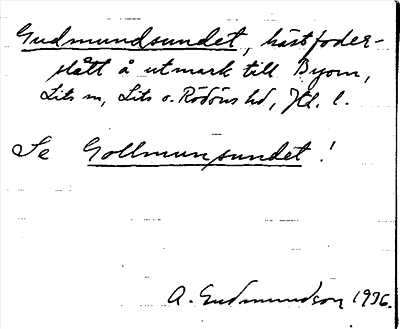 Gudmundsundet, hästfoder-
slått å utmark till Byom,
Lits sn, Lits o. Rödöns hd, Jtl. l.
Se Gollmunsundet!
A. Gudmundson 1936.